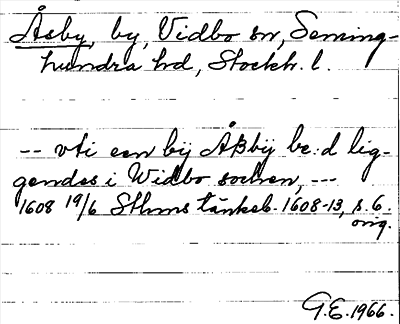 Åsby, by, Vidbo sn, Seming-
hundra hd, Stockh. l.
-- vti een bÿ Åßbÿ be:d lig-
gendes i Widbo sochen, ---
1608 19/6 Sthms tänkeb. 1608-13, s. 6.
orig.
G.E. 1966.